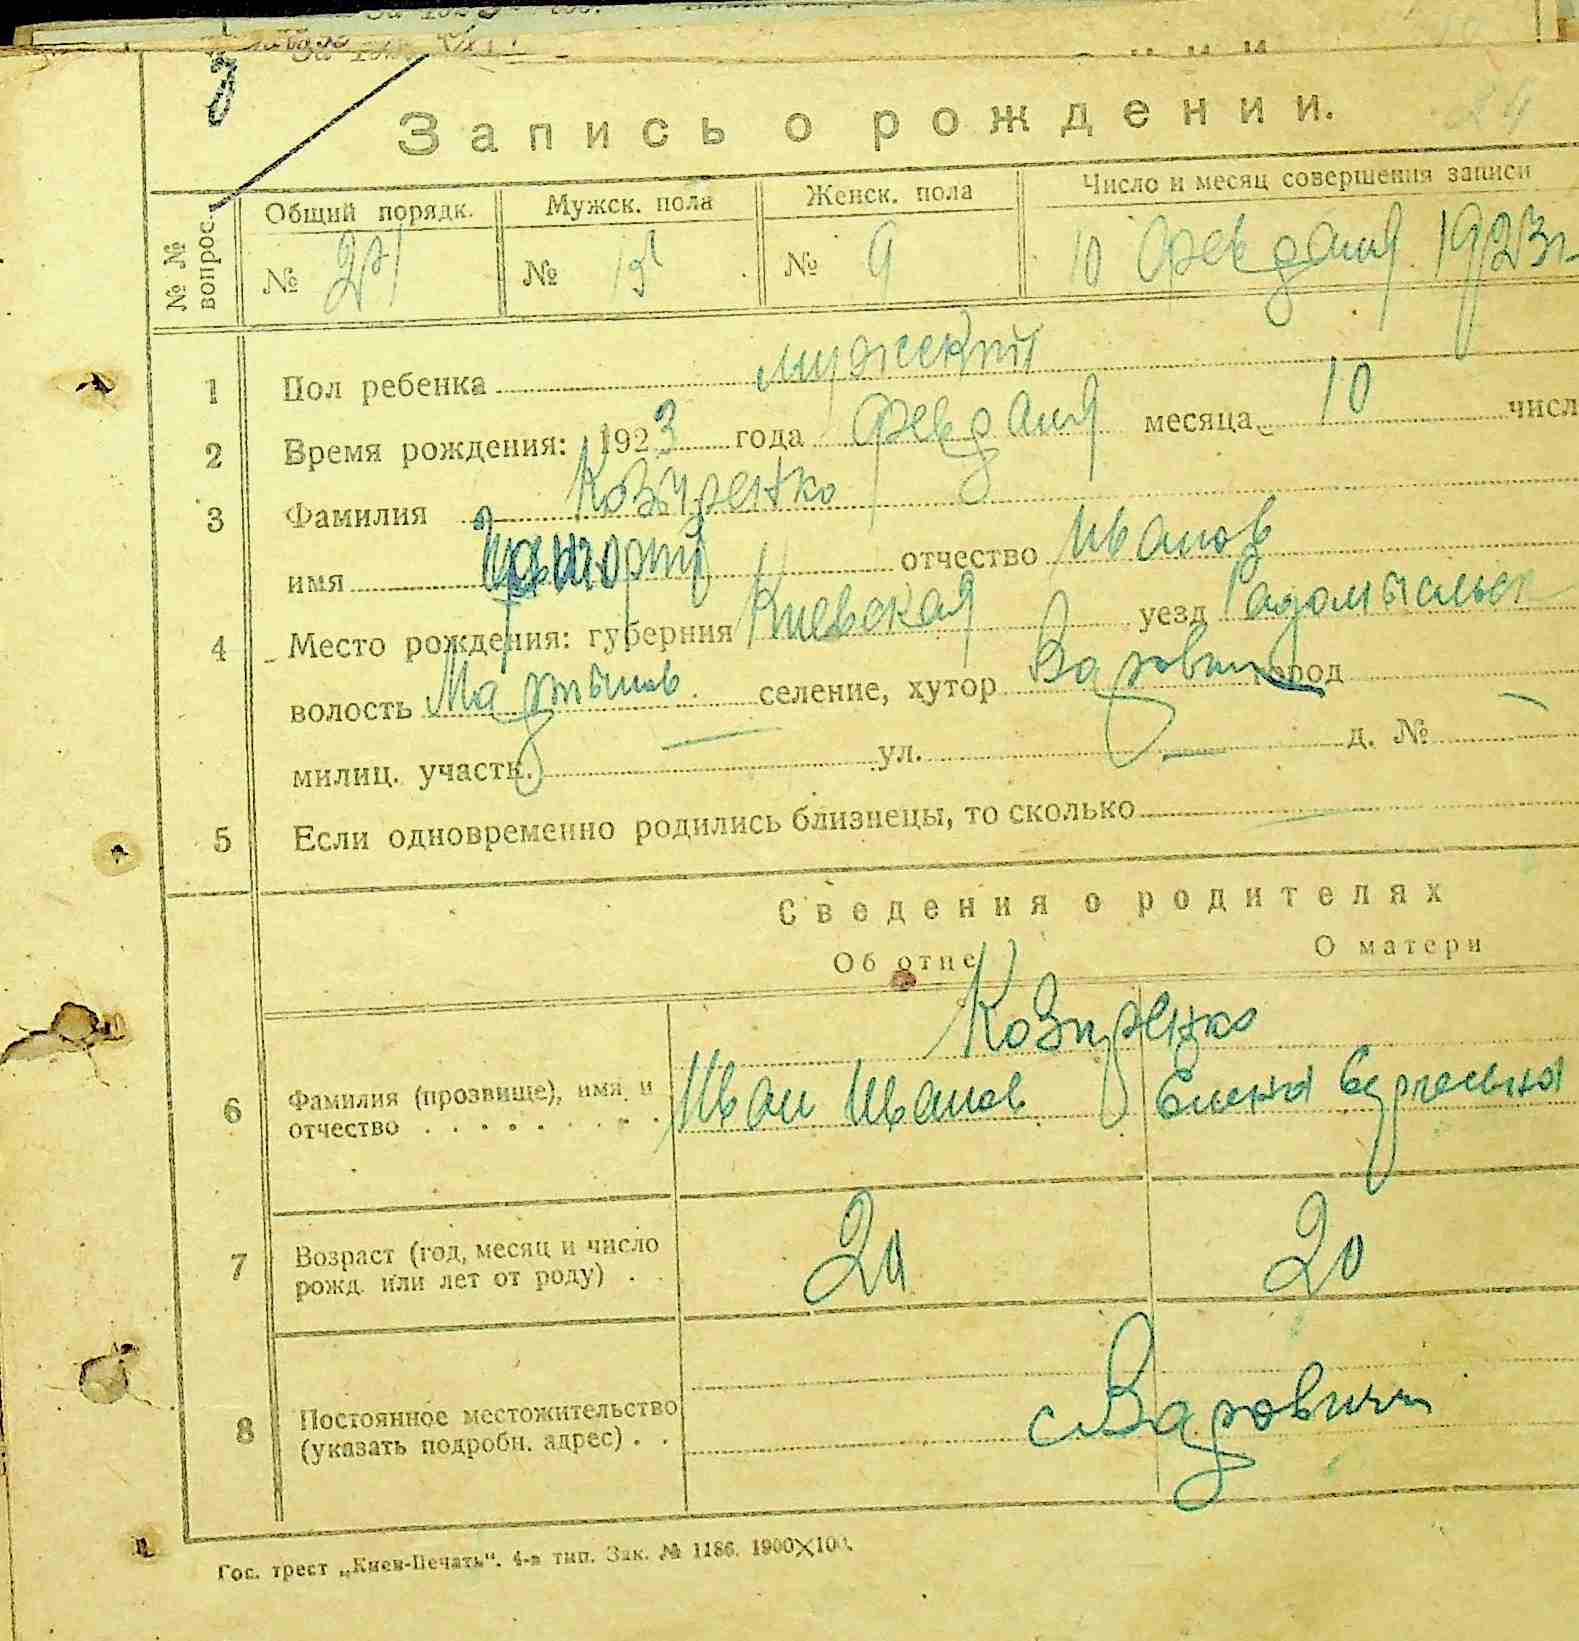 Запись о рождении.
№ № вопрос.
Общий порядк. Мужск. пола Женск. пола Число и месяц совершения записи
№ 24 № 15 № 9 10 февраля 1923 г.
1 Пол ребенка мужский
2 Время рождения: 1923 года февраля месяца 10 числ
3 Фамилия Козиренко
имя Григорий отчество Иванов
4 Место рождения: губерния Киевская уезд Радомысльск
волость Мартынов. селение, хутор Варовичи город
милиц. участк. — ул. — д. №
5 Если одновременно родились близнецы, то сколько
Сведения о родителях
Об отце О матери
Козиренко
6 Фамилия (прозвище), имя и Иван Иванов Елена
отчество
7 Возраст (год, месяц и число 20 20
рожд. или лет от роду)
8 Постоянное местожительство с Варовичи
(указать подробн. адрес)
Гос. трест „Киев-Печать“. 4-я тип. Зак. № 1186. 1900×100.